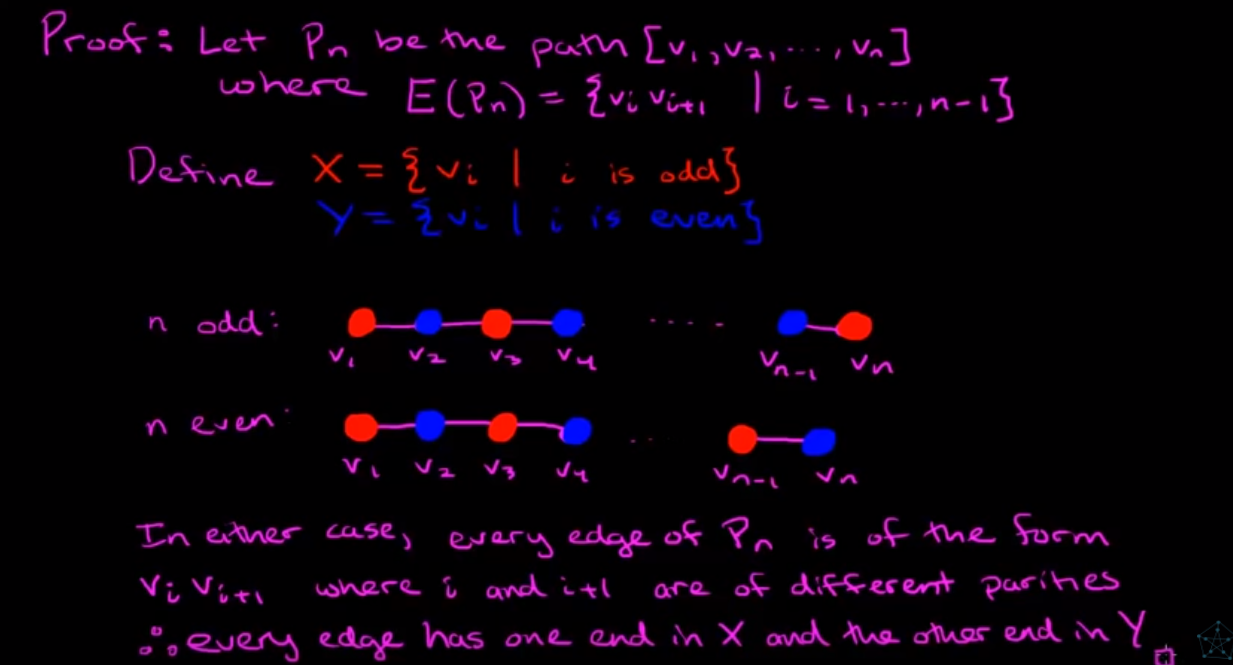 Proof: Let Pₙ be the path [v₁, v₂, ..., vₙ]
where E(Pₙ) = {vᵢ vᵢ₊₁ | i = 1, ..., n-1}
Define X = {vᵢ | i is odd}
Y = {vᵢ | i is even}
n odd:
v₁ v₂ v₃ v₄ vₙ₋₁ vₙ
n even:
v₁ v₂ v₃ v₄ vₙ₋₁ vₙ
In either case, every edge of Pₙ is of the form
vᵢ vᵢ₊₁ where i and i+1 are of different parities
∴ every edge has one end in X and the other end in Y